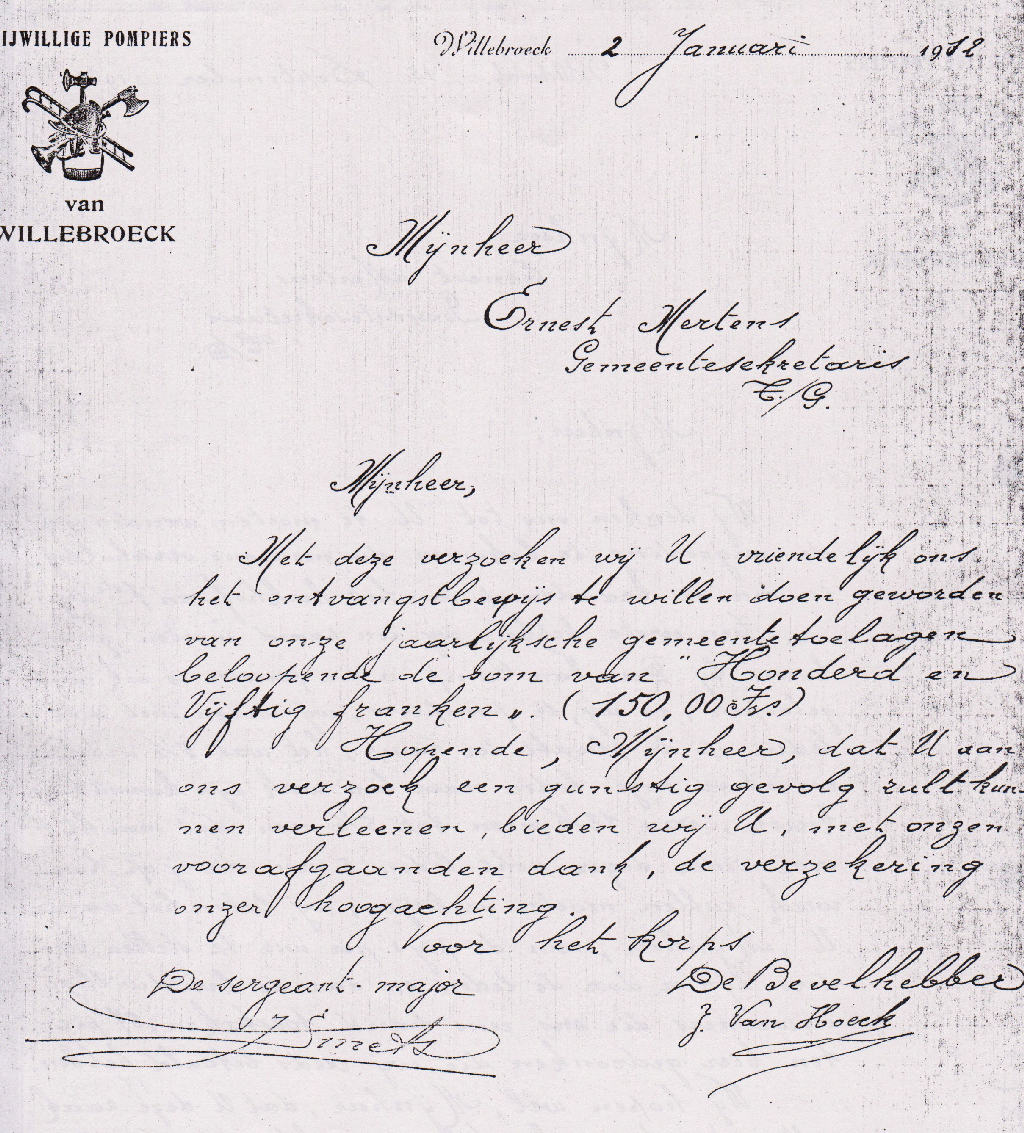 IJWILLIGE POMPIERS
van
WILLEBROECK
Willebroeck 2 Januari 1912
Mijnheer
Ernest Mertens
Gemeentesekretaris
T./G.
Mijnheer,
Met deze verzoeken wij U vriendelijk ons
het ontvangstbewijs te willen doen geworden
van onze jaarlijksche gemeentetoelagen
beloopende de som van "Honderd en
Vijftig franken". (150,00 Frs.)
Hopende, Mijnheer, dat U aan
ons verzoek een gunstig gevolg zult kun-
nen verleenen, bieden wij U, met onzen
voorafgaanden dank, de verzekering
onzer hoogachting.
Voor het korps
De sergeant-major
De Bevelhebber
J Smets
J. Van Hoeck